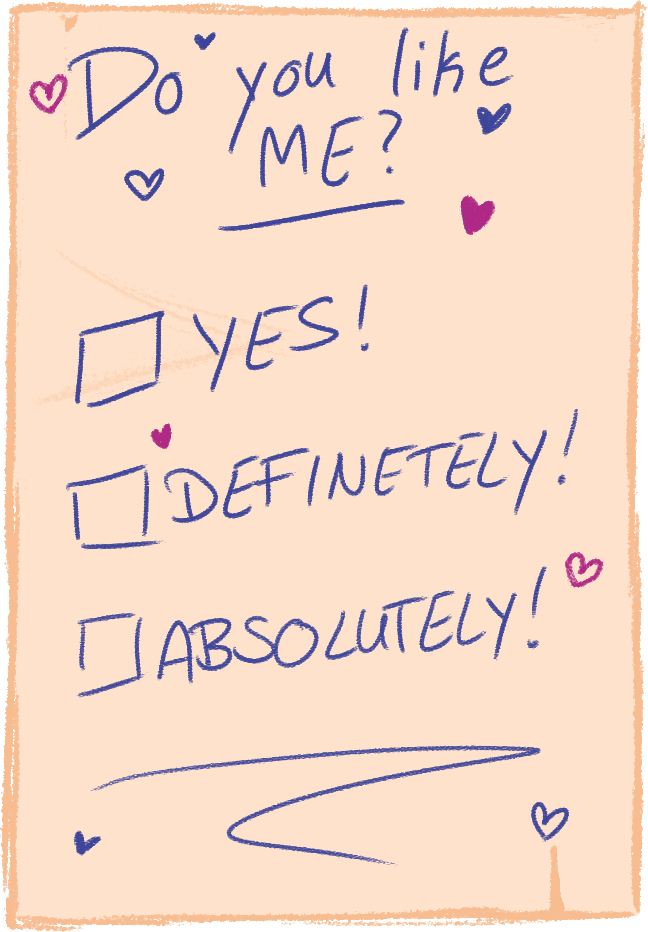 Do you like
ME?
YES!
DEFINETELY!
ABSOLUTELY!